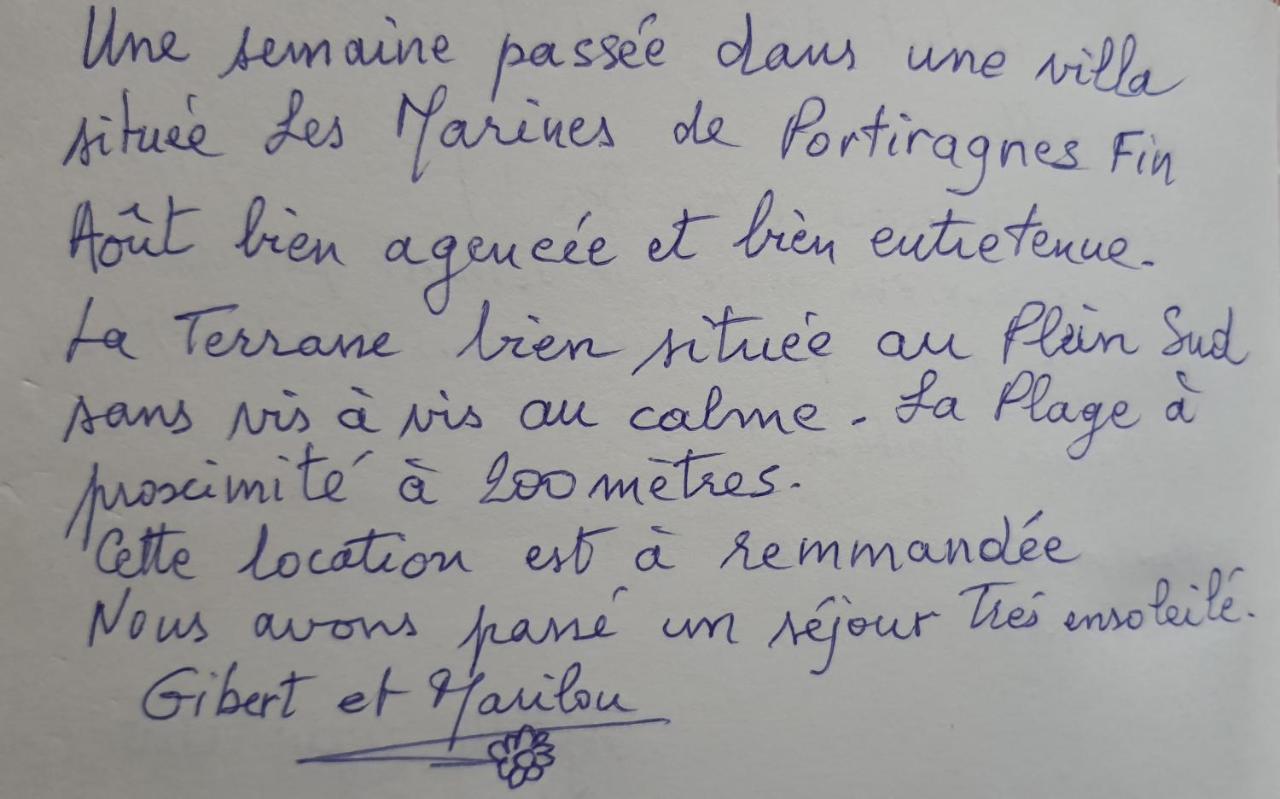 Une semaine passée dans une villa
située Les Marines de Portiragnes Fin
Août bien agencée et bien entretenue.
La Terrasse bien située au Plein Sud
sans vis à vis au calme. La Plage à
proximité à 200 mètres.
Cette location est à remmandée
Nous avons passé un séjour Trés ensoleilé.
Gibert et Marilou